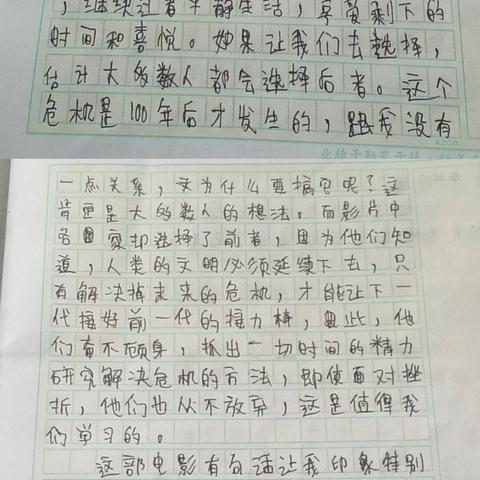 ，继续过着平静生活，享受剩下的
时间和喜悦。如果让我们去选择，
估计大多数人都会选择后者。这个
危机是100年后才发生的，跟我没有
一点关系，又为什么要搞它呢？这
肯定是大的数人的想法。而影片中
各国家却选择了前者，因为他们知
道，人类的文明必须延续下去，只
有解决掉未来的危机，才能让下一
代接好前一代的接力棒，因此，他
们奋不顾身，抓出一切时间的精力
研究解决危机的方法，即使面对挫
折，他们也从不放弃，这是值得我
们学习的。
这部电影有句话让我印象特别